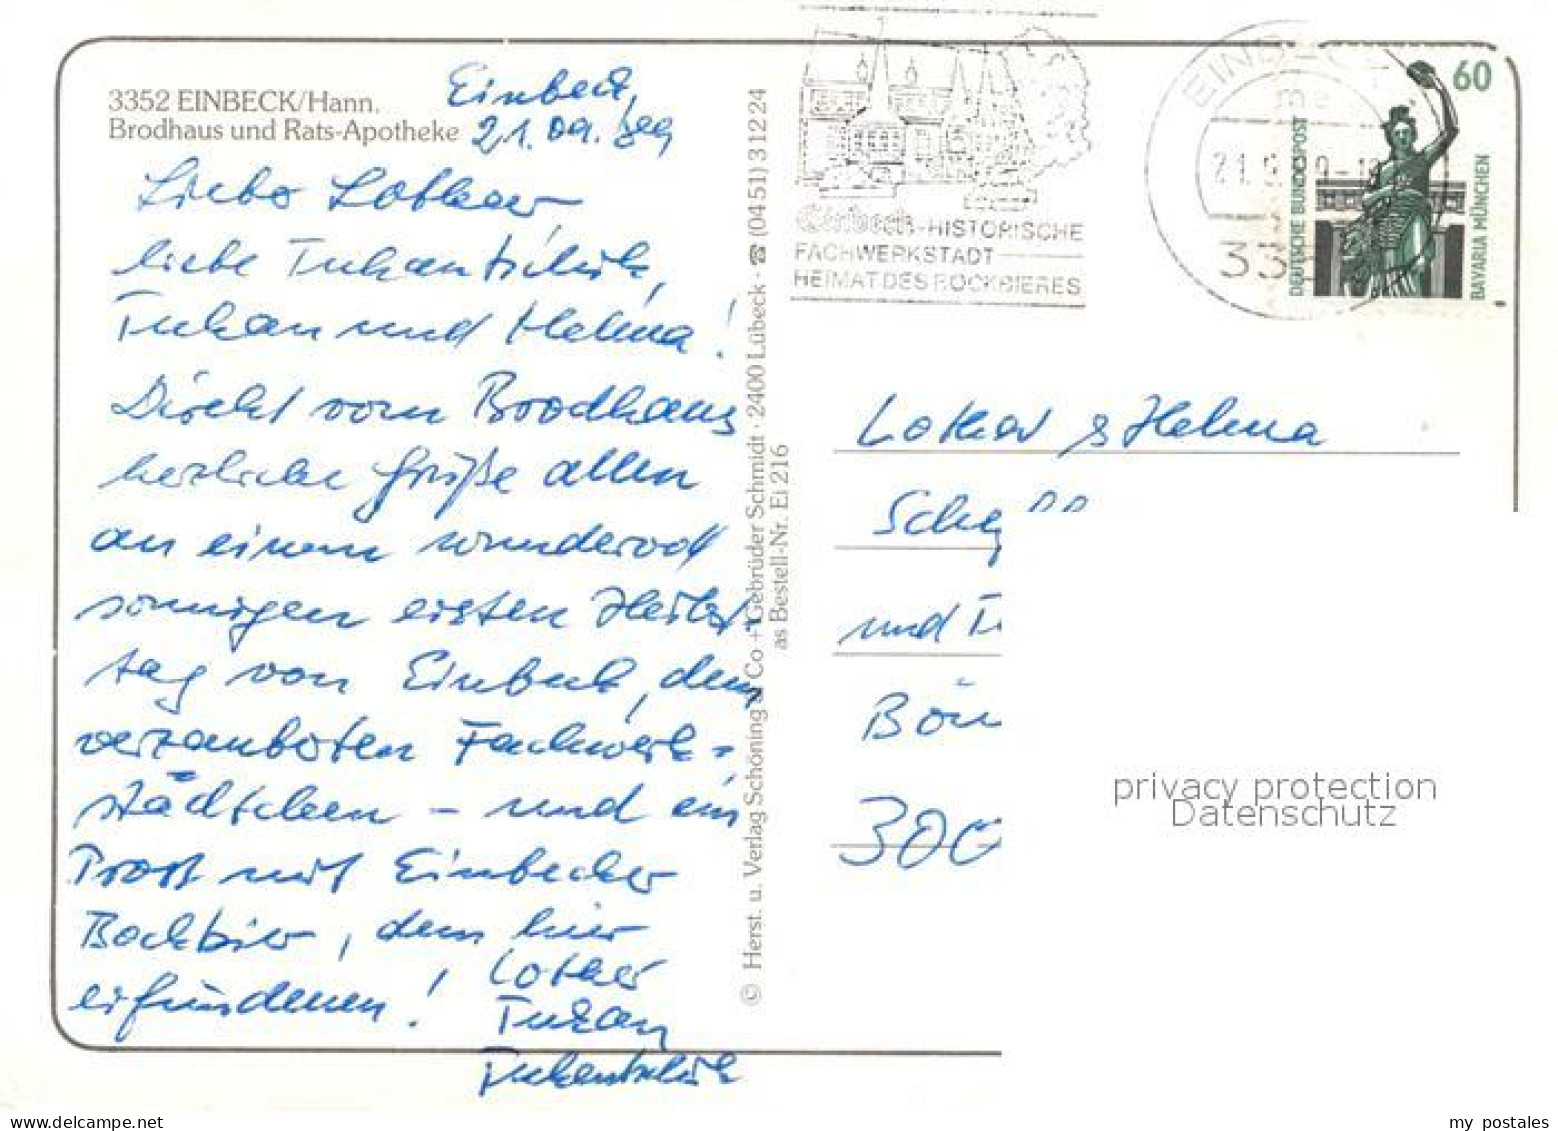 3352 EINBECK/Hann.
Brodhaus und Rats-Apotheke
Einbeck,
21.09.89
Lieber Lothar,
liebe
Tukan und Helma!
Direkt vom Brodhaus
herzliche Grüße allen
an einem wundervoll
sonnigen ersten Herbst-
tag von Einbeck, dem
verzauberten Fachwerk-
städtchen – und ein
Prost mit Einbecker
Bockbier, dem hier
erfundenen!
Lothar
Tukan
© Herst. u. Verlag Schöning & Co + Gebrüder Schmidt · 2400 Lübeck · ☎ (04 51) 3 12 24
as Bestell-Nr. Ei 216
Einbeck-HISTORISCHE
FACHWERKSTADT
HEIMAT DES BOCKBIERES
EINBECK
me
21.
33
60
DEUTSCHE BUNDESPOST
BAVARIA MÜNCHEN
Lothar & Helma
und
300
privacy protection
Datenschutz
www.delcampe.net
my_postales